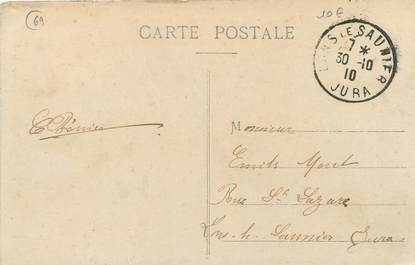 69
10€
CARTE POSTALE
LONS LE SAUNIER
7 *
30 -10
10
JURA
Monsieur
Emile Moret
Rue St Lazare
Lons-le-Saunier Jura